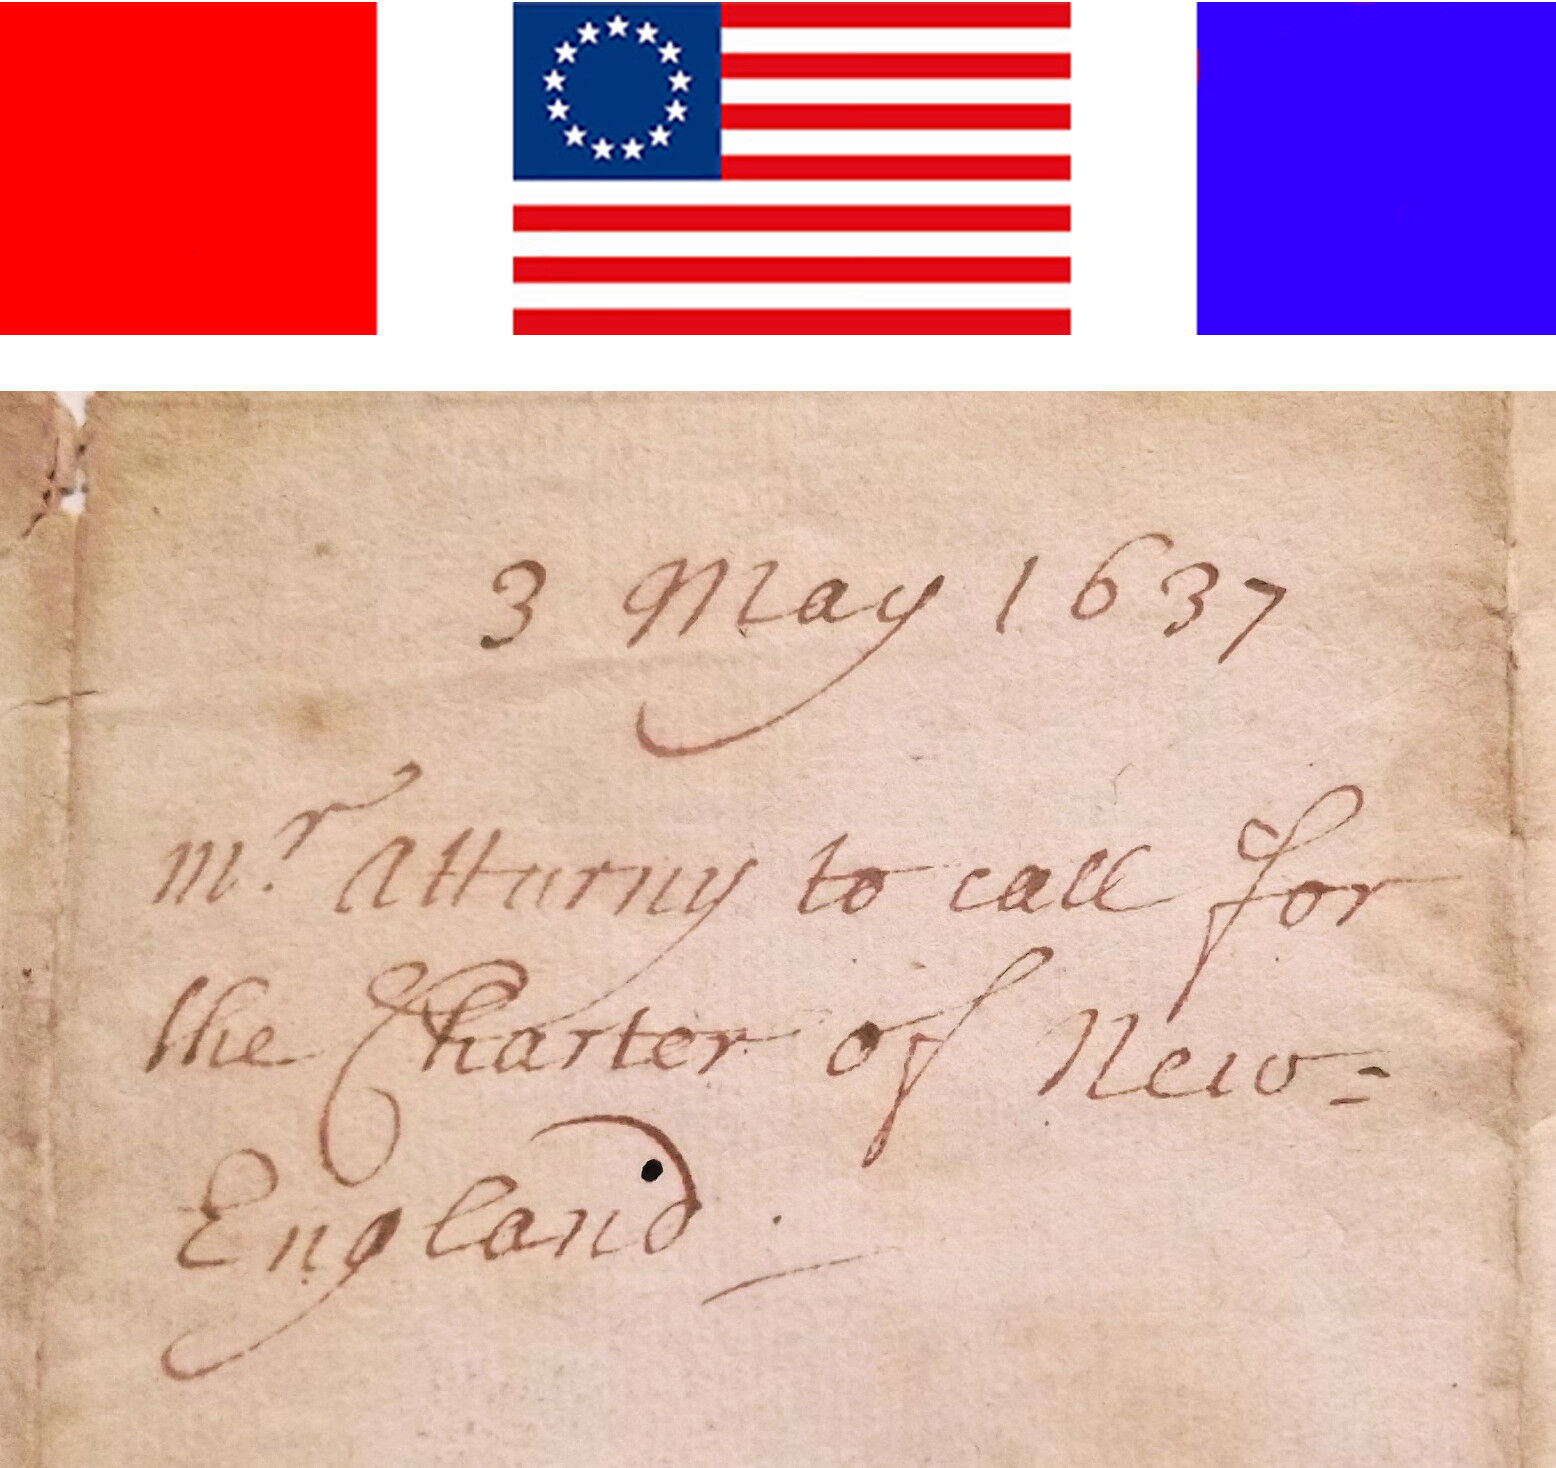 3 May 1637
mr. Atturny to call for
the Charter of New=
England.